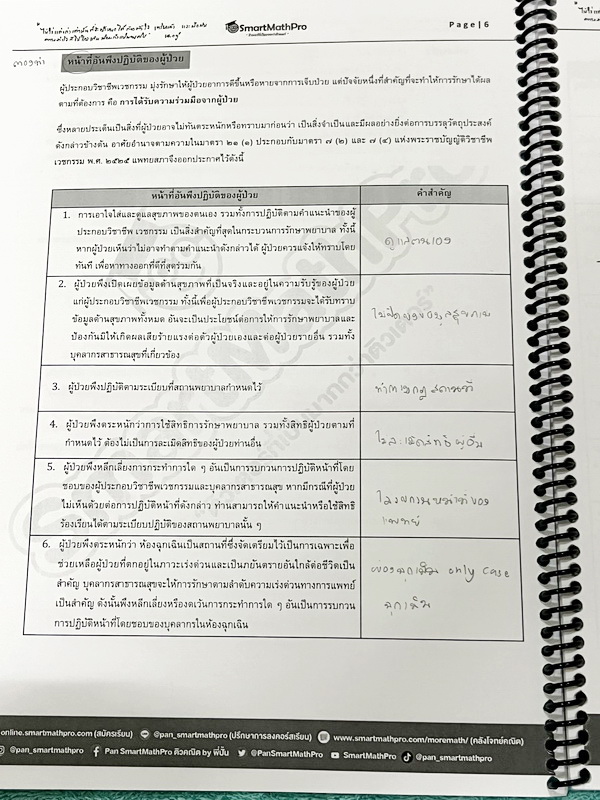 SmartMathPro
Page | 6
ต้องจำ
หน้าที่อันพึงปฏิบัติของผู้ป่วย
ผู้ประกอบวิชาชีพเวชกรรม มุ่งรักษาให้ผู้ป่วยอาการดีขึ้นหรือหายจากการเจ็บป่วย แต่ปัจจัยหนึ่งที่สำคัญที่จะทำให้การรักษาได้ผล
ตามที่ต้องการ คือ การได้รับความร่วมมือจากผู้ป่วย
ซึ่งหลายประเด็นเป็นสิ่งที่ผู้ป่วยอาจไม่ทันตระหนักหรือทราบมาก่อนว่า เป็นสิ่งจำเป็นและมีผลอย่างยิ่งต่อการบรรลุวัตถุประสงค์
ดังกล่าวข้างต้น อาศัยอำนาจตามความในมาตรา ๒๑ (๑) ประกอบกับมาตรา ๗ (๒) และ ๗ (๔) แห่งพระราชบัญญัติวิชาชีพ
เวชกรรม พ.ศ. ๒๕๒๕ แพทยสภาจึงออกประกาศไว้ดังนี้
หน้าที่อันพึงปฏิบัติของผู้ป่วย
คำสำคัญ
1. การเอาใจใส่และดูแลสุขภาพของตนเอง รวมทั้งการปฏิบัติตามคำแนะนำของผู้
ประกอบวิชาชีพ เวชกรรม เป็นสิ่งสำคัญที่สุดในกระบวนการรักษาพยาบาล ทั้งนี้
หากผู้ป่วยเห็นว่าไม่อาจทำตามคำแนะนำดังกล่าวได้ ผู้ป่วยควรแจ้งให้ทราบโดย
ทันที เพื่อหาทางออกที่ดีที่สุดร่วมกัน
ดูแลตนเอง
2. ผู้ป่วยพึงเปิดเผยข้อมูลด้านสุขภาพที่เป็นจริงและอยู่ในความรับรู้ของผู้ป่วย
แก่ผู้ประกอบวิชาชีพเวชกรรม ทั้งนี้เพื่อผู้ประกอบวิชาชีพเวชกรรมจะได้รับทราบ
ข้อมูลด้านสุขภาพทั้งหมด อันจะเป็นประโยชน์ต่อการให้การรักษาพยาบาลและ
ป้องกันมิให้เกิดผลเสียร้ายแรงต่อตัวผู้ป่วยเองและต่อผู้ป่วยรายอื่น รวมทั้ง
บุคลากรสาธารณสุขที่เกี่ยวข้อง
ไม่ปิดบังข้อมูลสุขภาพ
3. ผู้ป่วยพึงปฏิบัติตามระเบียบที่สถานพยาบาลกำหนดไว้
ทำตามกฎ
4. ผู้ป่วยพึงตระหนักว่าการใช้สิทธิการรักษาพยาบาล รวมทั้งสิทธิผู้ป่วยตามที่
กำหนดไว้ ต้องไม่เป็นการละเมิดสิทธิของผู้ป่วยท่านอื่น
ไม่ละเมิดสิทธิผู้อื่น
5. ผู้ป่วยพึงหลีกเลี่ยงการกระทำการใด ๆ อันเป็นการรบกวนการปฏิบัติหน้าที่โดย
ชอบของผู้ประกอบวิชาชีพเวชกรรมและบุคลากรสาธารณสุข หากมีกรณีที่ผู้ป่วย
ไม่เห็นด้วยต่อการปฏิบัติหน้าที่ดังกล่าว ท่านสามารถให้คำแนะนำหรือใช้สิทธิ
ร้องเรียนได้ตามระเบียบปฏิบัติของสถานพยาบาลนั้น ๆ
หน้าที่ของ
แพทย์
6. ผู้ป่วยพึงตระหนักว่า ห้องฉุกเฉินเป็นสถานที่ซึ่งจัดเตรียมไว้เป็นการเฉพาะเพื่อ
ช่วยเหลือผู้ป่วยที่ตกอยู่ในภาวะเร่งด่วนและเป็นภยันตรายอันใกล้ต่อชีวิตเป็น
สำคัญ บุคลากรสาธารณสุขจะให้การรักษาตามลำดับความเร่งด่วนทางการแพทย์
เป็นสำคัญ ดังนั้นพึงหลีกเลี่ยงหรืองดเว้นการกระทำการใด ๆ อันเป็นการรบกวน
การปฏิบัติหน้าที่โดยชอบของบุคลากรในห้องฉุกเฉิน
ห้องฉุกเฉิน only case
ฉุกเฉิน
online.smartmathpro.com (สมัครเรียน) @pan_smartmathpro (ปรึกษาการลงคอร์สเรียน) www.smartmathpro.com/moremath/ (คลังโจทย์คณิต)
@pan_smartmathpro Pan SmartMathPro ติวคณิต by พี่ปั้น @PanSmartMathPro SmartMathPro @pan_smartmathpro